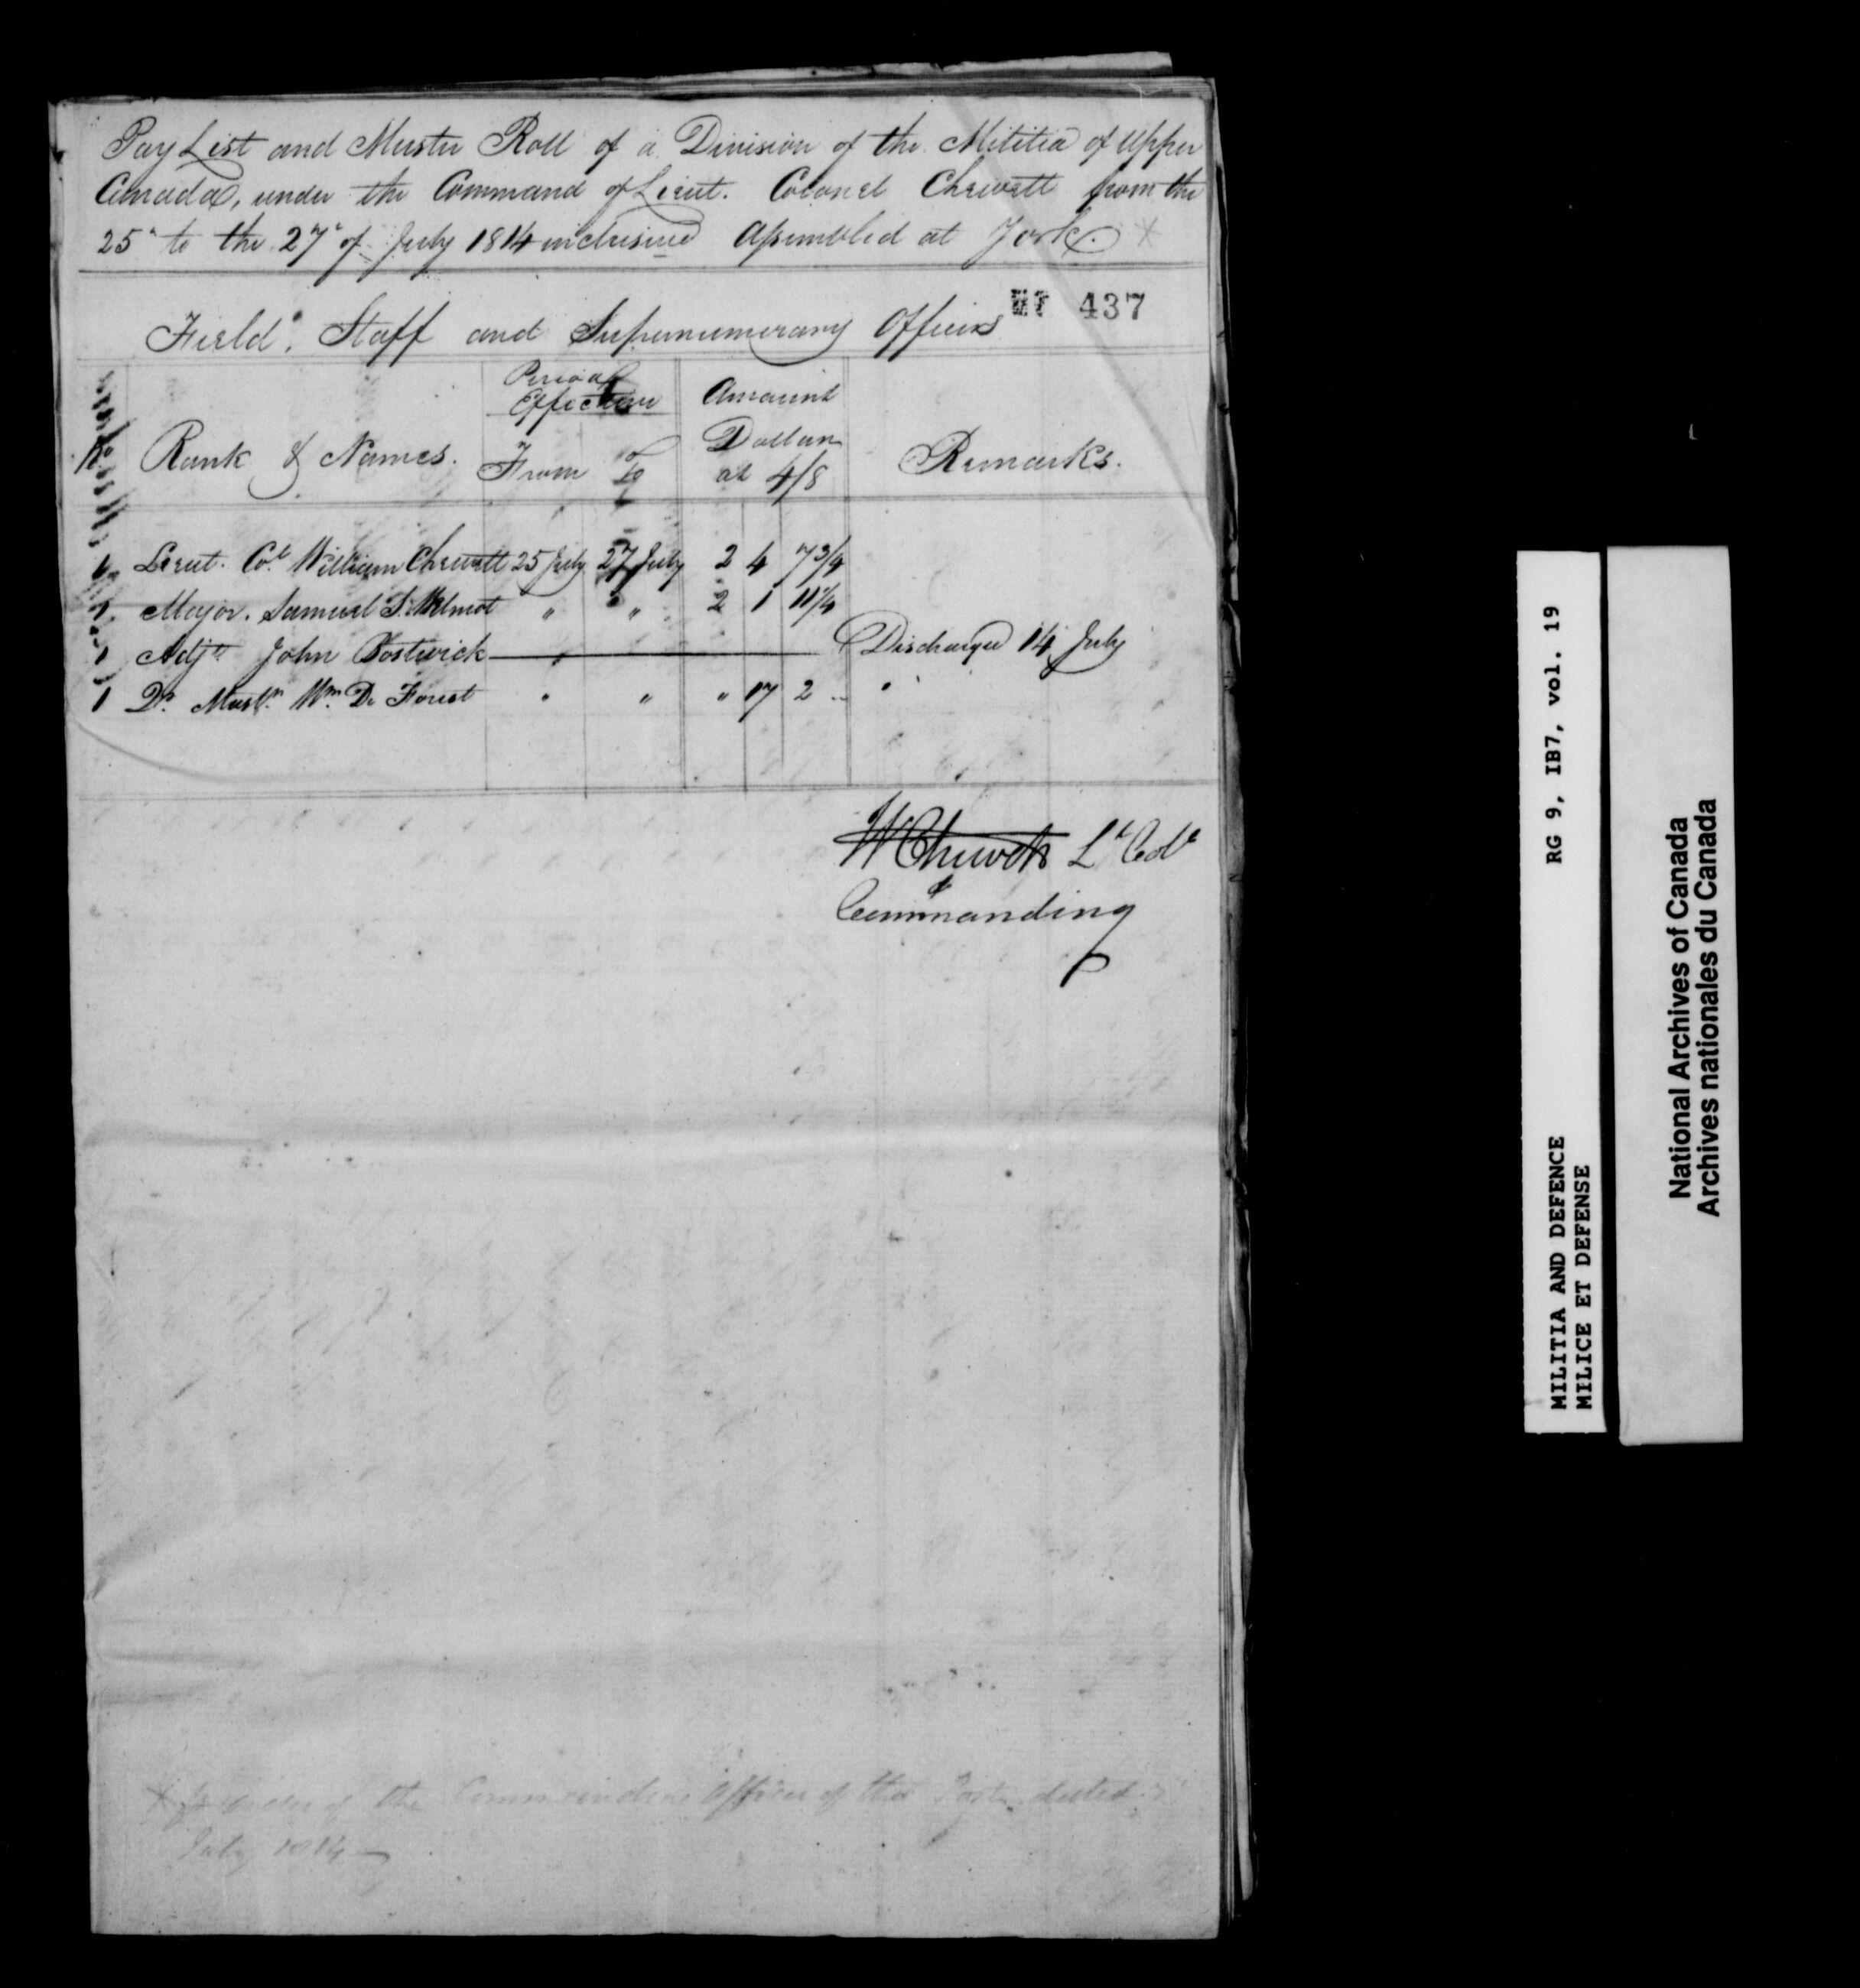 Pay List and Muster Roll of a Division of the Militia of Upper
Canada, under the Command of Lieut. Colonel Chewett from the
25" to the 27" of July 1814 inclusive Assembled at York. X
437
Field. Staff and Supernumerary Officers
No Rank & Names. Period Effective From To Amount Dollars at 4/8 Remarks.
1 Lieut. Col. William Chewett 25 July 27 July 2 4 7 3/4
1 Major. Samuel S. Wilmot " " 2 1 11 1/4
1 Adjt John Bostwick " Discharged 14 July
1 Qr. Mastr. Wm. De Forest " " " 17 2 "
W Chewett Lt Col
Commanding
X order of the Commanding Officer of the Post dated
July 1814
RG 9, IB7, vol. 19
MILITIA AND DEFENCE
MILICE ET DEFENSE
National Archives of Canada
Archives nationales du Canada